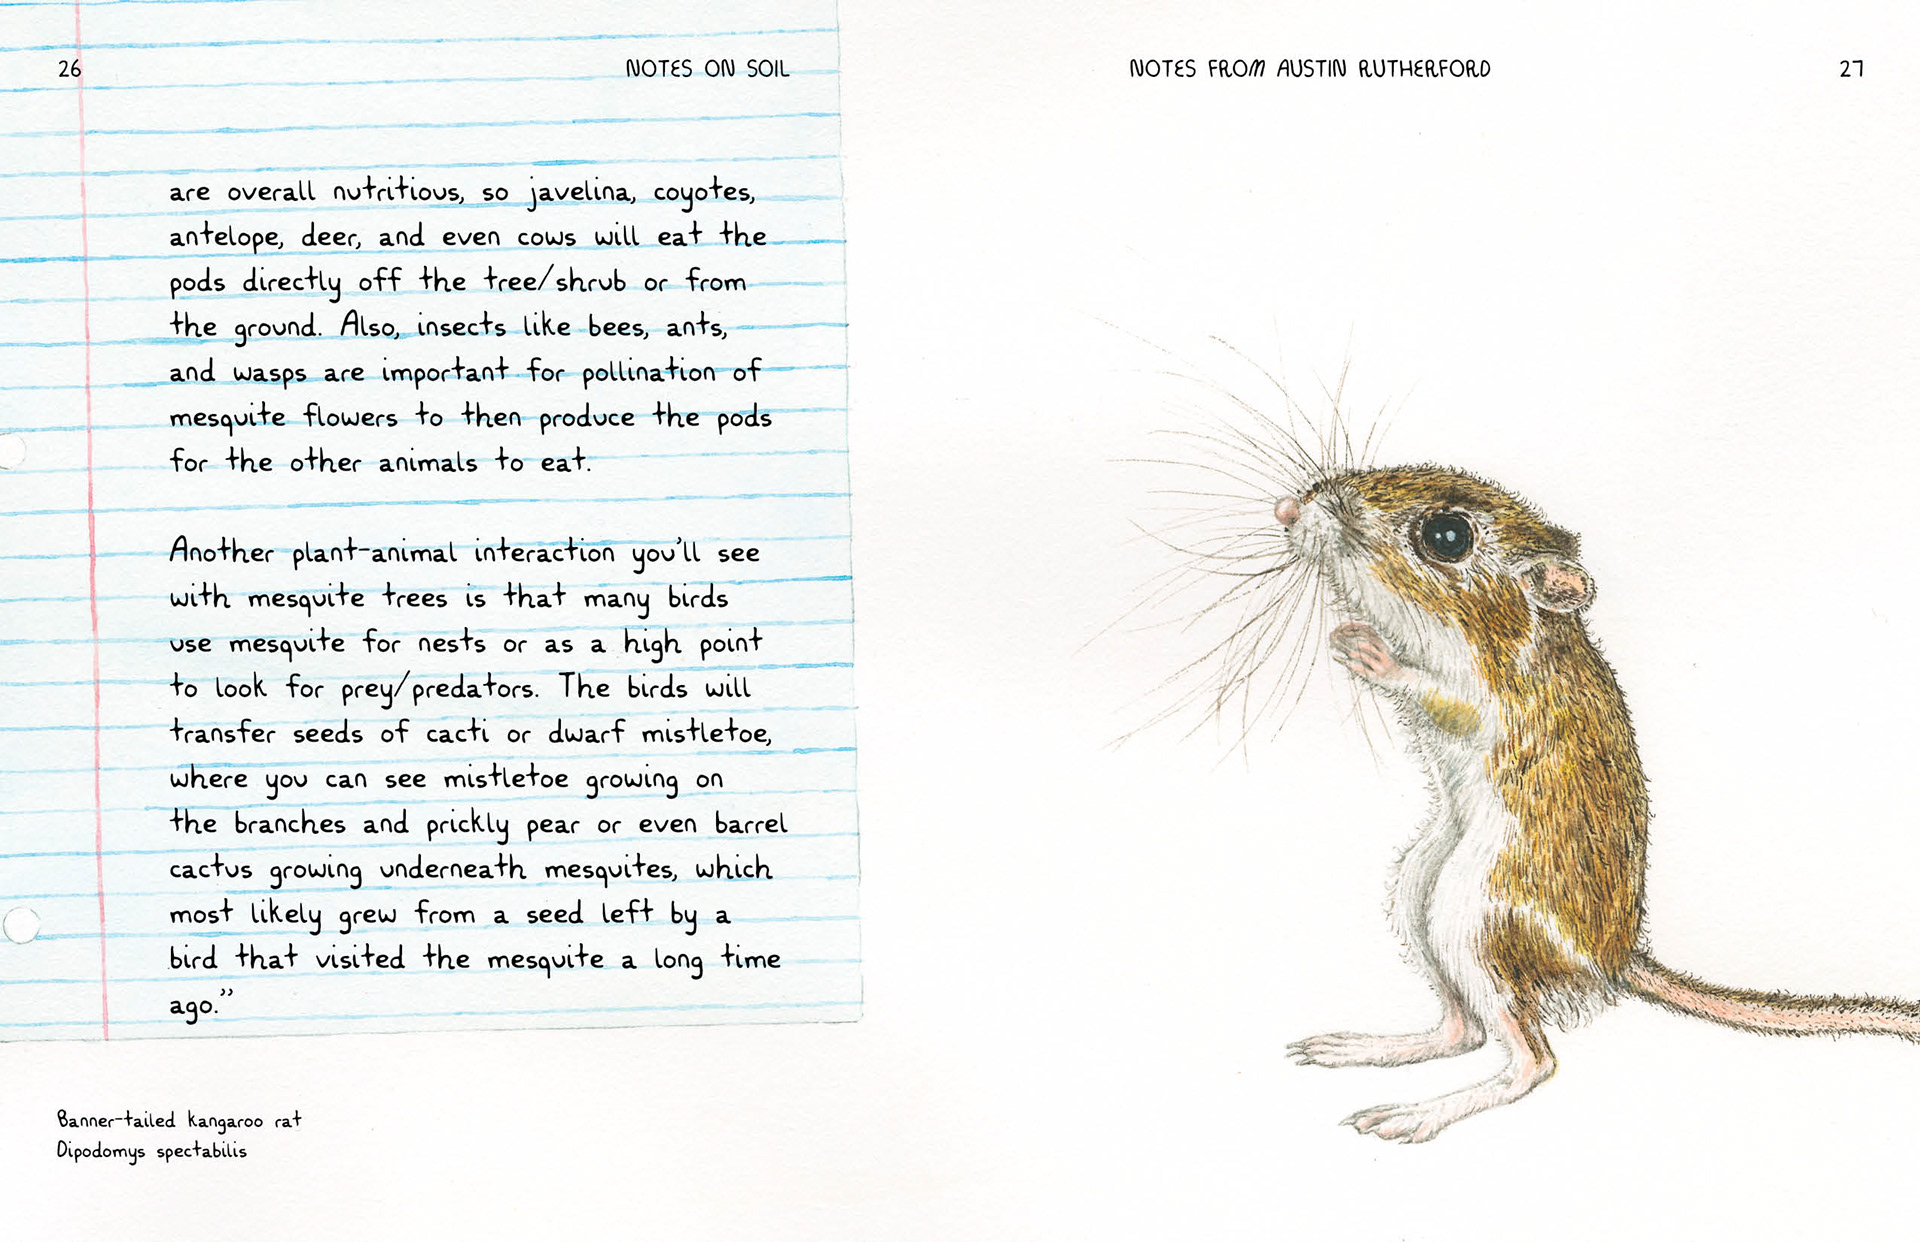 26
NOTES ON SOIL
are overall nutritious, so javelina, coyotes,
antelope, deer, and even cows will eat the
pods directly off the tree/shrub or from
the ground. Also, insects like bees, ants,
and wasps are important for pollination of
mesquite flowers to then produce the pods
for the other animals to eat.
Another plant-animal interaction you'll see
with mesquite trees is that many birds
use mesquite for nests or as a high point
to look for prey/predators. The birds will
transfer seeds of cacti or dwarf mistletoe,
where you can see mistletoe growing on
the branches and prickly pear or even barrel
cactus growing underneath mesquites, which
most likely grew from a seed left by a
bird that visited the mesquite a long time
ago.”
Banner-tailed kangaroo rat
Dipodomys spectabilis
NOTES FROM AUSTIN RUTHERFORD
27